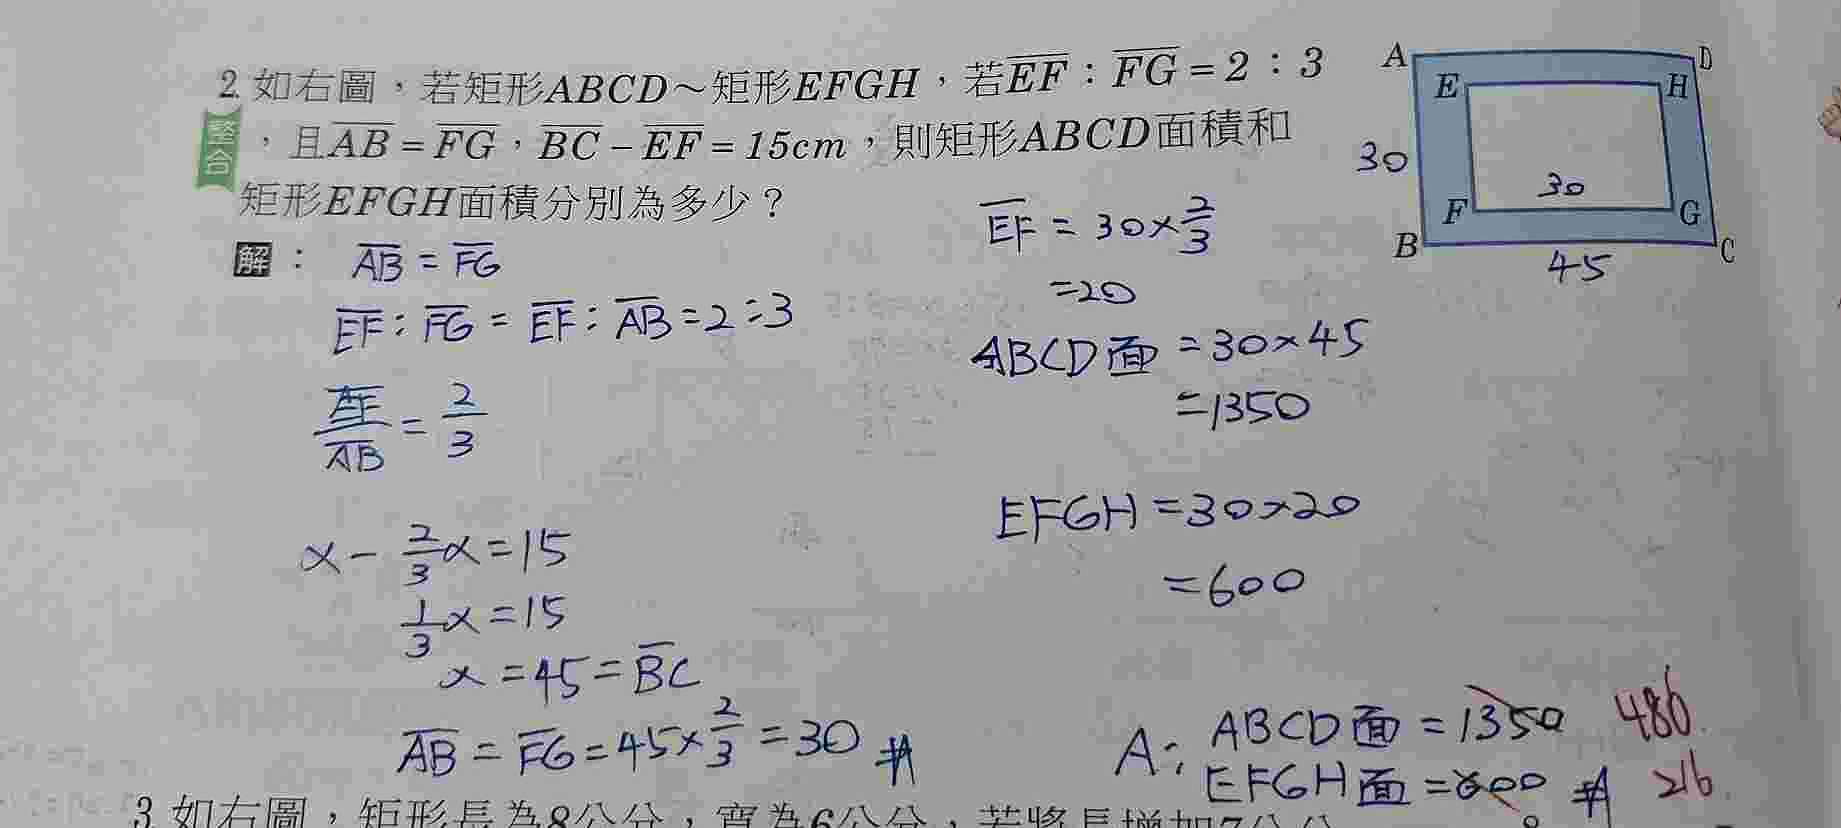 2. 如右圖，若矩形ABCD～矩形EFGH，若EF：FG＝2：3
整合
，且AB＝FG，BC－EF＝15cm，則矩形ABCD面積和
矩形EFGH面積分別為多少？
A
D
E
H
30
30
F
G
B
C
45
解：
AB = FG
EF : FG = EF : AB = 2 : 3
EF/AB = 2/3
x - 2/3 x = 15
1/3 x = 15
x = 45 = BC
AB = FG = 45 × 2/3 = 30 #
EF = 30 × 2/3
= 20
ABCD面 = 30 × 45
= 1350
EFGH = 30 × 20
= 600
A: ABCD面 = 1350 486
EFGH面 = 600 # 216
3. 如右圖，矩形長為8公分，寬為6公分，若將長增加7公分